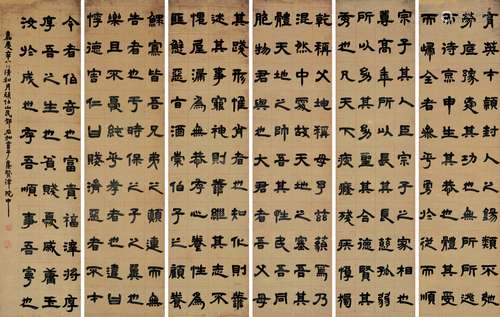 育英材潁封人之錫類不弛
勞底豫舜其功也無所逃
而待烹申生其恭也體其受
而歸全者參乎勇於從而順
宗子其大臣宗子之家相也
尊高年所以長其長慈孤弱
所以幼其幼聖其合德賢其
秀也凡天下疲癃殘疾惸獨
乾稱父坤稱母予茲藐焉乃
混然中處故天地之塞吾其
體天地之帥吾其性民吾同
胞物吾與也大君者吾父母
其踐形唯肖者也知化則善
述其事窮神則善繼其志不
愧屋漏為無忝存心養性為
匪懈惡旨酒崇伯子之顧養
鰥寡皆吾兄弟之顛連而無
告者也于時保之子之翼也
樂且不憂純乎孝者也違曰
悖德害仁曰賊濟惡者不才
令者伯奇也富貴福澤將以
厚吾之生也貧賤憂戚庸玉
汝於成也存吾順事沒吾寧也
嘉慶 清和月頑伯山民鄧石如書于